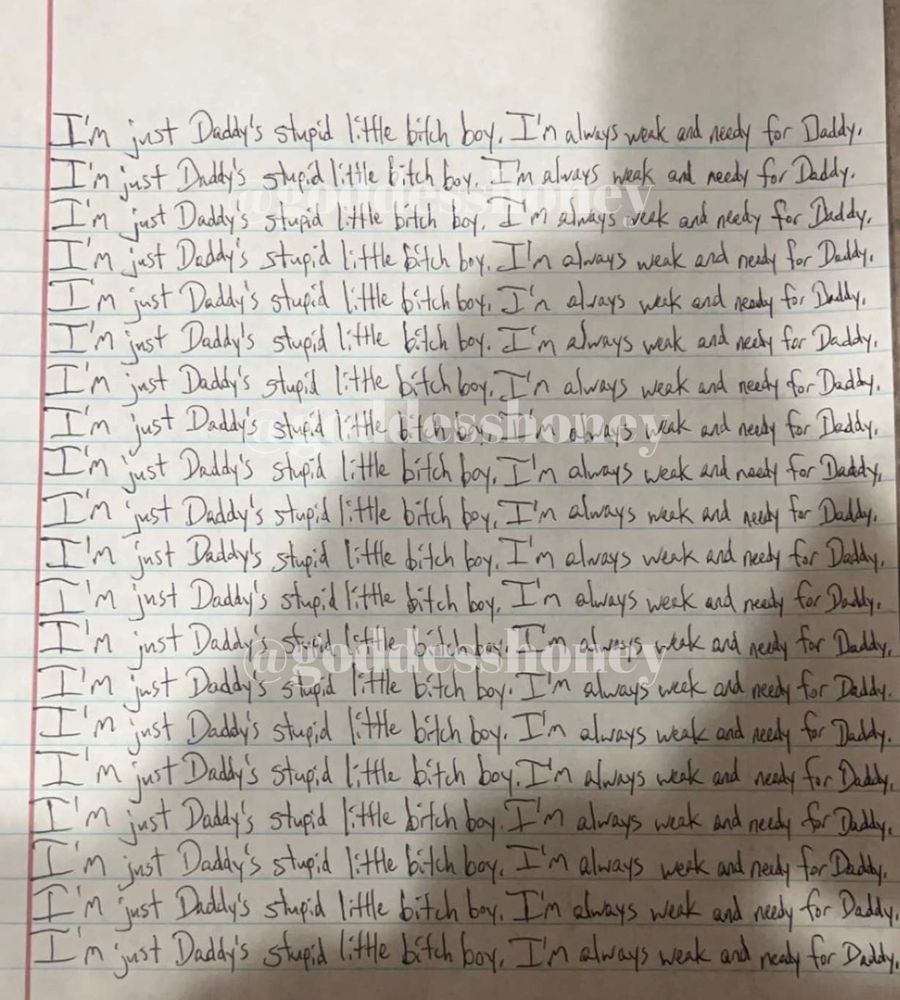 I'm just Daddy's stupid little bitch boy. I'm always weak and needy for Daddy.
I'm just Daddy's stupid little bitch boy. I'm always weak and needy for Daddy.
@goddesshoney
I'm just Daddy's stupid little bitch boy. I'm always weak and needy for Daddy.
I'm just Daddy's stupid little bitch boy. I'm always weak and needy for Daddy.
I'm just Daddy's stupid little bitch boy. I'm always weak and needy for Daddy.
I'm just Daddy's stupid little bitch boy. I'm always weak and needy for Daddy.
I'm just Daddy's stupid little bitch boy. I'm always weak and needy for Daddy.
I'm just Daddy's stupid little bitch boy. I'm always weak and needy for Daddy.
@goddesshoney
I'm just Daddy's stupid little bitch boy. I'm always weak and needy for Daddy.
I'm just Daddy's stupid little bitch boy. I'm always weak and needy for Daddy.
I'm just Daddy's stupid little bitch boy. I'm always weak and needy for Daddy.
I'm just Daddy's stupid little bitch boy. I'm always weak and needy for Daddy.
I'm just Daddy's stupid little bitch boy. I'm always weak and needy for Daddy.
@goddesshoney
I'm just Daddy's stupid little bitch boy. I'm always weak and needy for Daddy.
I'm just Daddy's stupid little bitch boy. I'm always weak and needy for Daddy.
I'm just Daddy's stupid little bitch boy. I'm always weak and needy for Daddy.
I'm just Daddy's stupid little bitch boy. I'm always weak and needy for Daddy.
I'm just Daddy's stupid little bitch boy. I'm always weak and needy for Daddy.
I'm just Daddy's stupid little bitch boy. I'm always weak and needy for Daddy.
I'm just Daddy's stupid little bitch boy. I'm always weak and needy for Daddy.